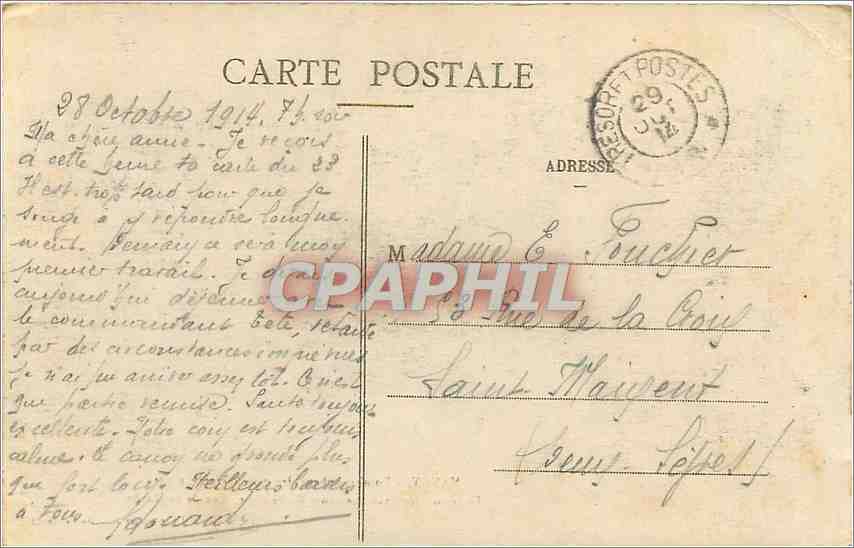 CARTE POSTALE
TRESOR ET POSTES
29
OCT
14
ADRESSE
28 Octobre 1914. 7h. soir
Ma chère amie. Je reçois
à cette heure ta carte du 23
Il est trop tard pour que je
songe à y répondre longue-
ment. Demain ce sera mon
premier travail. Je devais
aujourd'hui déjeuner
le commandant Tété, retardé
par des circonstances
je n'ai pu arriver assez tôt. Ce n'est
que partie remise. Santé toujours
excellente. Notre coin est toujours
calme. le canon ne gronde plus
que fort loin. Meilleurs baisers
à tous. Edouard
Madame E. Fouchier
53 Rue de la Croix
Saint Maixent
(Deux-Sèvres)
CPAPHIL